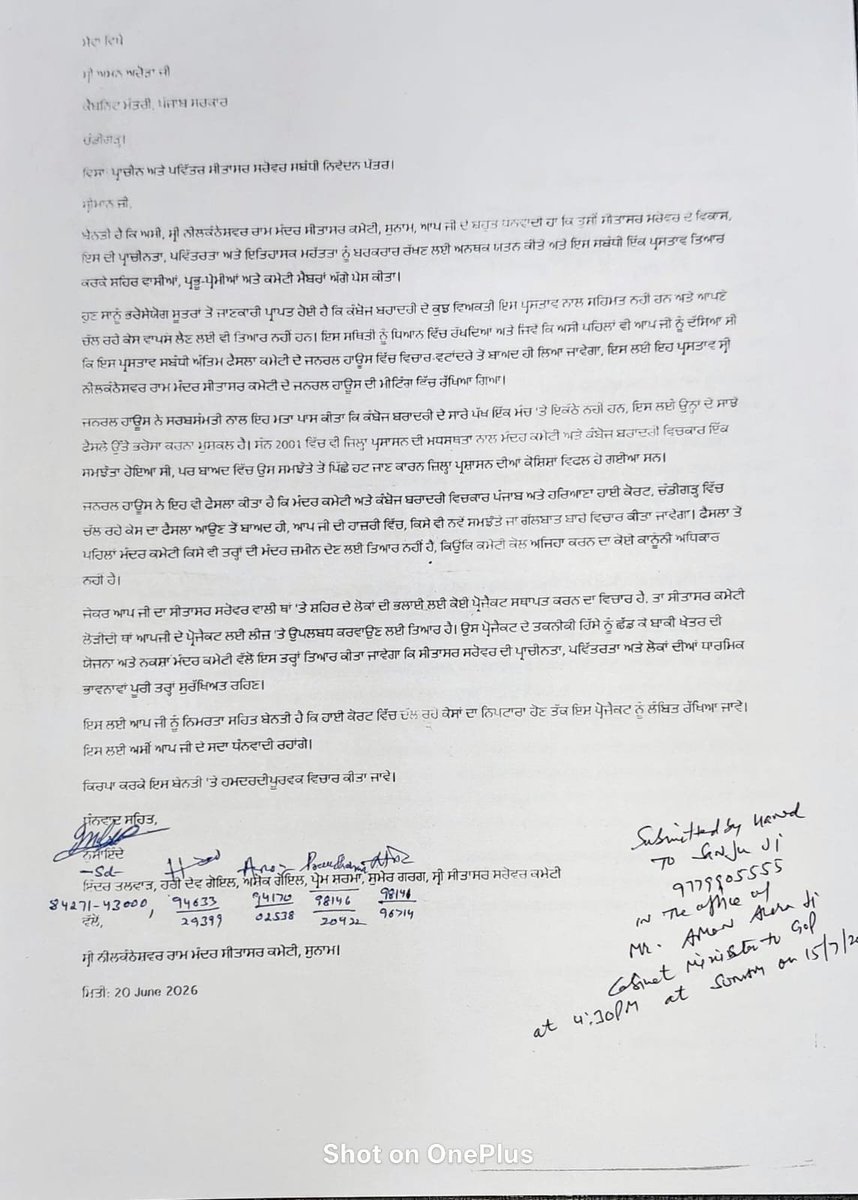 ਸੇਵਾ ਵਿਖੇ
ਸ੍ਰੀ ਅਮਨ ਅਰੋੜਾ ਜੀ
ਕੈਬਨਿਟ ਮੰਤਰੀ, ਪੰਜਾਬ ਸਰਕਾਰ
ਚੰਡੀਗੜ੍ਹ।
ਵਿਸ਼ਾ: ਪ੍ਰਾਚੀਨ ਅਤੇ ਪਵਿੱਤਰ ਸੀਤਾਸਰ ਸਰੋਵਰ ਸਬੰਧੀ ਨਿਵੇਦਨ ਪੱਤਰ।
ਸ਼੍ਰੀਮਾਨ ਜੀ,
ਬੇਨਤੀ ਹੈ ਕਿ ਅਸੀਂ, ਸ੍ਰੀ ਨੀਲਕੰਠੇਸ਼ਵਰ ਰਾਮ ਮੰਦਰ ਸੀਤਾਸਰ ਕਮੇਟੀ, ਸੁਨਾਮ, ਆਪ ਜੀ ਦੇ ਬਹੁਤ ਧਨਵਾਦੀ ਹਾਂ ਕਿ ਤੁਸੀਂ ਸੀਤਾਸਰ ਸਰੋਵਰ ਦੇ ਵਿਕਾਸ,
ਇਸ ਦੀ ਪ੍ਰਾਚੀਨਤਾ, ਪਵਿੱਤਰਤਾ ਅਤੇ ਇਤਿਹਾਸਕ ਮਹੱਤਤਾ ਨੂੰ ਬਰਕਰਾਰ ਰੱਖਣ ਲਈ ਅਨਥਕ ਯਤਨ ਕੀਤੇ ਅਤੇ ਇਸ ਸਬੰਧੀ ਇੱਕ ਪ੍ਰਸਤਾਵ ਤਿਆਰ
ਕਰਕੇ ਸ਼ਹਿਰ ਵਾਸੀਆਂ, ਪ੍ਰਭੂ-ਪ੍ਰੇਮੀਆਂ ਅਤੇ ਕਮੇਟੀ ਮੈਂਬਰਾਂ ਅੱਗੇ ਪੇਸ਼ ਕੀਤਾ।
ਹੁਣ ਸਾਨੂੰ ਭਰੋਸੇਯੋਗ ਸੂਤਰਾਂ ਤੋਂ ਜਾਣਕਾਰੀ ਪ੍ਰਾਪਤ ਹੋਈ ਹੈ ਕਿ ਕੰਬੋਜ ਬਰਾਦਰੀ ਦੇ ਕੁਝ ਵਿਅਕਤੀ ਇਸ ਪ੍ਰਸਤਾਵ ਨਾਲ ਸਹਿਮਤ ਨਹੀਂ ਹਨ ਅਤੇ ਆਪਣੇ
ਚੱਲ ਰਹੇ ਕੇਸ ਵਾਪਸ ਲੈਣ ਲਈ ਵੀ ਤਿਆਰ ਨਹੀਂ ਹਨ। ਇਸ ਸਥਿਤੀ ਨੂੰ ਧਿਆਨ ਵਿੱਚ ਰੱਖਦਿਆਂ ਅਤੇ ਜਿਵੇਂ ਕਿ ਅਸੀਂ ਪਹਿਲਾਂ ਵੀ ਆਪ ਜੀ ਨੂੰ ਦੱਸਿਆ ਸੀ
ਕਿ ਇਸ ਪ੍ਰਸਤਾਵ ਸਬੰਧੀ ਅੰਤਿਮ ਫੈਸਲਾ ਕਮੇਟੀ ਦੇ ਜਨਰਲ ਹਾਊਸ ਵਿੱਚ ਵਿਚਾਰ-ਵਟਾਂਦਰੇ ਤੋਂ ਬਾਅਦ ਹੀ ਲਿਆ ਜਾਵੇਗਾ, ਇਸ ਲਈ ਇਹ ਪ੍ਰਸਤਾਵ ਸ੍ਰੀ
ਨੀਲਕੰਠੇਸ਼ਵਰ ਰਾਮ ਮੰਦਰ ਸੀਤਾਸਰ ਕਮੇਟੀ ਦੇ ਜਨਰਲ ਹਾਊਸ ਦੀ ਮੀਟਿੰਗ ਵਿੱਚ ਰੱਖਿਆ ਗਿਆ।
ਜਨਰਲ ਹਾਊਸ ਨੇ ਸਰਬਸੰਮਤੀ ਨਾਲ ਇਹ ਮਤਾ ਪਾਸ ਕੀਤਾ ਕਿ ਕੰਬੋਜ ਬਰਾਦਰੀ ਦੇ ਸਾਰੇ ਪੱਖ ਇੱਕ ਮੰਚ 'ਤੇ ਇਕੱਠੇ ਨਹੀਂ ਹਨ, ਇਸ ਲਈ ਉਨ੍ਹਾਂ ਦੇ ਸਾਂਝੇ
ਫੈਸਲੇ ਉੱਤੇ ਭਰੋਸਾ ਕਰਨਾ ਮੁਸ਼ਕਲ ਹੈ। ਸੰਨ 2001 ਵਿੱਚ ਵੀ ਜ਼ਿਲ੍ਹਾ ਪ੍ਰਸ਼ਾਸਨ ਦੀ ਮਧਸਥਤਾ ਨਾਲ ਮੰਦਰ ਕਮੇਟੀ ਅਤੇ ਕੰਬੋਜ ਬਰਾਦਰੀ ਵਿਚਕਾਰ ਇੱਕ
ਸਮਝੌਤਾ ਹੋਇਆ ਸੀ, ਪਰ ਬਾਅਦ ਵਿੱਚ ਉਸ ਸਮਝੌਤੇ ਤੋਂ ਪਿੱਛੇ ਹਟ ਜਾਣ ਕਾਰਨ ਜ਼ਿਲ੍ਹਾ ਪ੍ਰਸ਼ਾਸਨ ਦੀਆਂ ਕੋਸ਼ਿਸ਼ਾਂ ਵਿਫਲ ਹੋ ਗਈਆਂ ਸਨ।
ਜਨਰਲ ਹਾਊਸ ਨੇ ਇਹ ਵੀ ਫੈਸਲਾ ਕੀਤਾ ਹੈ ਕਿ ਮੰਦਰ ਕਮੇਟੀ ਅਤੇ ਕੰਬੋਜ ਬਰਾਦਰੀ ਵਿਚਕਾਰ ਪੰਜਾਬ ਅਤੇ ਹਰਿਆਣਾ ਹਾਈ ਕੋਰਟ, ਚੰਡੀਗੜ੍ਹ ਵਿੱਚ
ਚੱਲ ਰਹੇ ਕੇਸ ਦਾ ਫੈਸਲਾ ਆਉਣ ਤੋਂ ਬਾਅਦ ਹੀ, ਆਪ ਜੀ ਦੀ ਹਾਜ਼ਰੀ ਵਿੱਚ, ਕਿਸੇ ਵੀ ਨਵੇਂ ਸਮਝੌਤੇ ਜਾਂ ਗੱਲਬਾਤ ਬਾਰੇ ਵਿਚਾਰ ਕੀਤਾ ਜਾਵੇਗਾ। ਫੈਸਲਾ ਤੋਂ
ਪਹਿਲਾਂ ਮੰਦਰ ਕਮੇਟੀ ਕਿਸੇ ਵੀ ਤਰ੍ਹਾਂ ਦੀ ਮੰਦਰ ਜ਼ਮੀਨ ਦੇਣ ਲਈ ਤਿਆਰ ਨਹੀਂ ਹੈ, ਕਿਉਂਕਿ ਕਮੇਟੀ ਕੋਲ ਅਜਿਹਾ ਕਰਨ ਦਾ ਕੋਈ ਕਾਨੂੰਨੀ ਅਧਿਕਾਰ
ਨਹੀਂ ਹੈ।
ਜੇਕਰ ਆਪ ਜੀ ਦਾ ਸੀਤਾਸਰ ਸਰੋਵਰ ਵਾਲੀ ਥਾਂ 'ਤੇ ਸ਼ਹਿਰ ਦੇ ਲੋਕਾਂ ਦੀ ਭਲਾਈ ਲਈ ਕੋਈ ਪ੍ਰੋਜੈਕਟ ਸਥਾਪਤ ਕਰਨ ਦਾ ਵਿਚਾਰ ਹੈ, ਤਾਂ ਸੀਤਾਸਰ ਕਮੇਟੀ
ਲੋੜੀਂਦੀ ਥਾਂ ਆਪਜੀ ਦੇ ਪ੍ਰੋਜੈਕਟ ਲਈ ਲੀਜ਼ 'ਤੇ ਉਪਲਬਧ ਕਰਵਾਉਣ ਲਈ ਤਿਆਰ ਹੈ। ਉਸ ਪ੍ਰੋਜੈਕਟ ਦੇ ਤਕਨੀਕੀ ਹਿੱਸੇ ਨੂੰ ਛੱਡ ਕੇ ਬਾਕੀ ਖੇਤਰ ਦੀ
ਯੋਜਨਾ ਅਤੇ ਨਕਸ਼ਾ ਮੰਦਰ ਕਮੇਟੀ ਵੱਲੋਂ ਇਸ ਤਰ੍ਹਾਂ ਤਿਆਰ ਕੀਤਾ ਜਾਵੇਗਾ ਕਿ ਸੀਤਾਸਰ ਸਰੋਵਰ ਦੀ ਪ੍ਰਾਚੀਨਤਾ, ਪਵਿੱਤਰਤਾ ਅਤੇ ਲੋਕਾਂ ਦੀਆਂ ਧਾਰਮਿਕ
ਭਾਵਨਾਵਾਂ ਪੂਰੀ ਤਰ੍ਹਾਂ ਸੁਰੱਖਿਅਤ ਰਹਿਣ।
ਇਸ ਲਈ ਆਪ ਜੀ ਨੂੰ ਨਿਮਰਤਾ ਸਹਿਤ ਬੇਨਤੀ ਹੈ ਕਿ ਹਾਈ ਕੋਰਟ ਵਿੱਚ ਚੱਲ ਰਹੇ ਕੇਸਾਂ ਦਾ ਨਿਪਟਾਰਾ ਹੋਣ ਤੱਕ ਇਸ ਪ੍ਰੋਜੈਕਟ ਨੂੰ ਲੰਬਿਤ ਰੱਖਿਆ ਜਾਵੇ।
ਇਸ ਲਈ ਅਸੀਂ ਆਪ ਜੀ ਦੇ ਸਦਾ ਧੰਨਵਾਦੀ ਰਹਾਂਗੇ।
ਕਿਰਪਾ ਕਰਕੇ ਇਸ ਬੇਨਤੀ 'ਤੇ ਹਮਦਰਦੀਪੂਰਵਕ ਵਿਚਾਰ ਕੀਤਾ ਜਾਵੇ।
ਧੰਨਵਾਦ ਸਹਿਤ,
ਨੁਮਾਇੰਦੇ
-Sd-
ਸਿੰਦਰ ਤਲਵਾੜ, ਹਰੀ ਦੇਵ ਗੋਇਲ, ਅਸ਼ੋਕ ਗੋਇਲ, ਪ੍ਰੇਮ ਸ਼ਰਮਾ, ਸੁਮੇਰ ਗਰਗ, ਸ੍ਰੀ ਸੀਤਾਸਰ ਸਰੋਵਰ ਕਮੇਟੀ
84271-43000, 94633 94170 98146 98146
ਵੱਲੋਂ, 29399 02538 20422 96714
ਸ੍ਰੀ ਨੀਲਕੰਠੇਸ਼ਵਰ ਰਾਮ ਮੰਦਰ ਸੀਤਾਸਰ ਕਮੇਟੀ, ਸੁਨਾਮ।
ਮਿਤੀ: 20 June 2026
Submitted by Hand
To Sanju Ji
9779905555
in the office of
Mr. Aman Arora Ji
Cabinet Minister to GoP
at 4:30PM at Sunam on 15/7/20
Shot on OnePlus